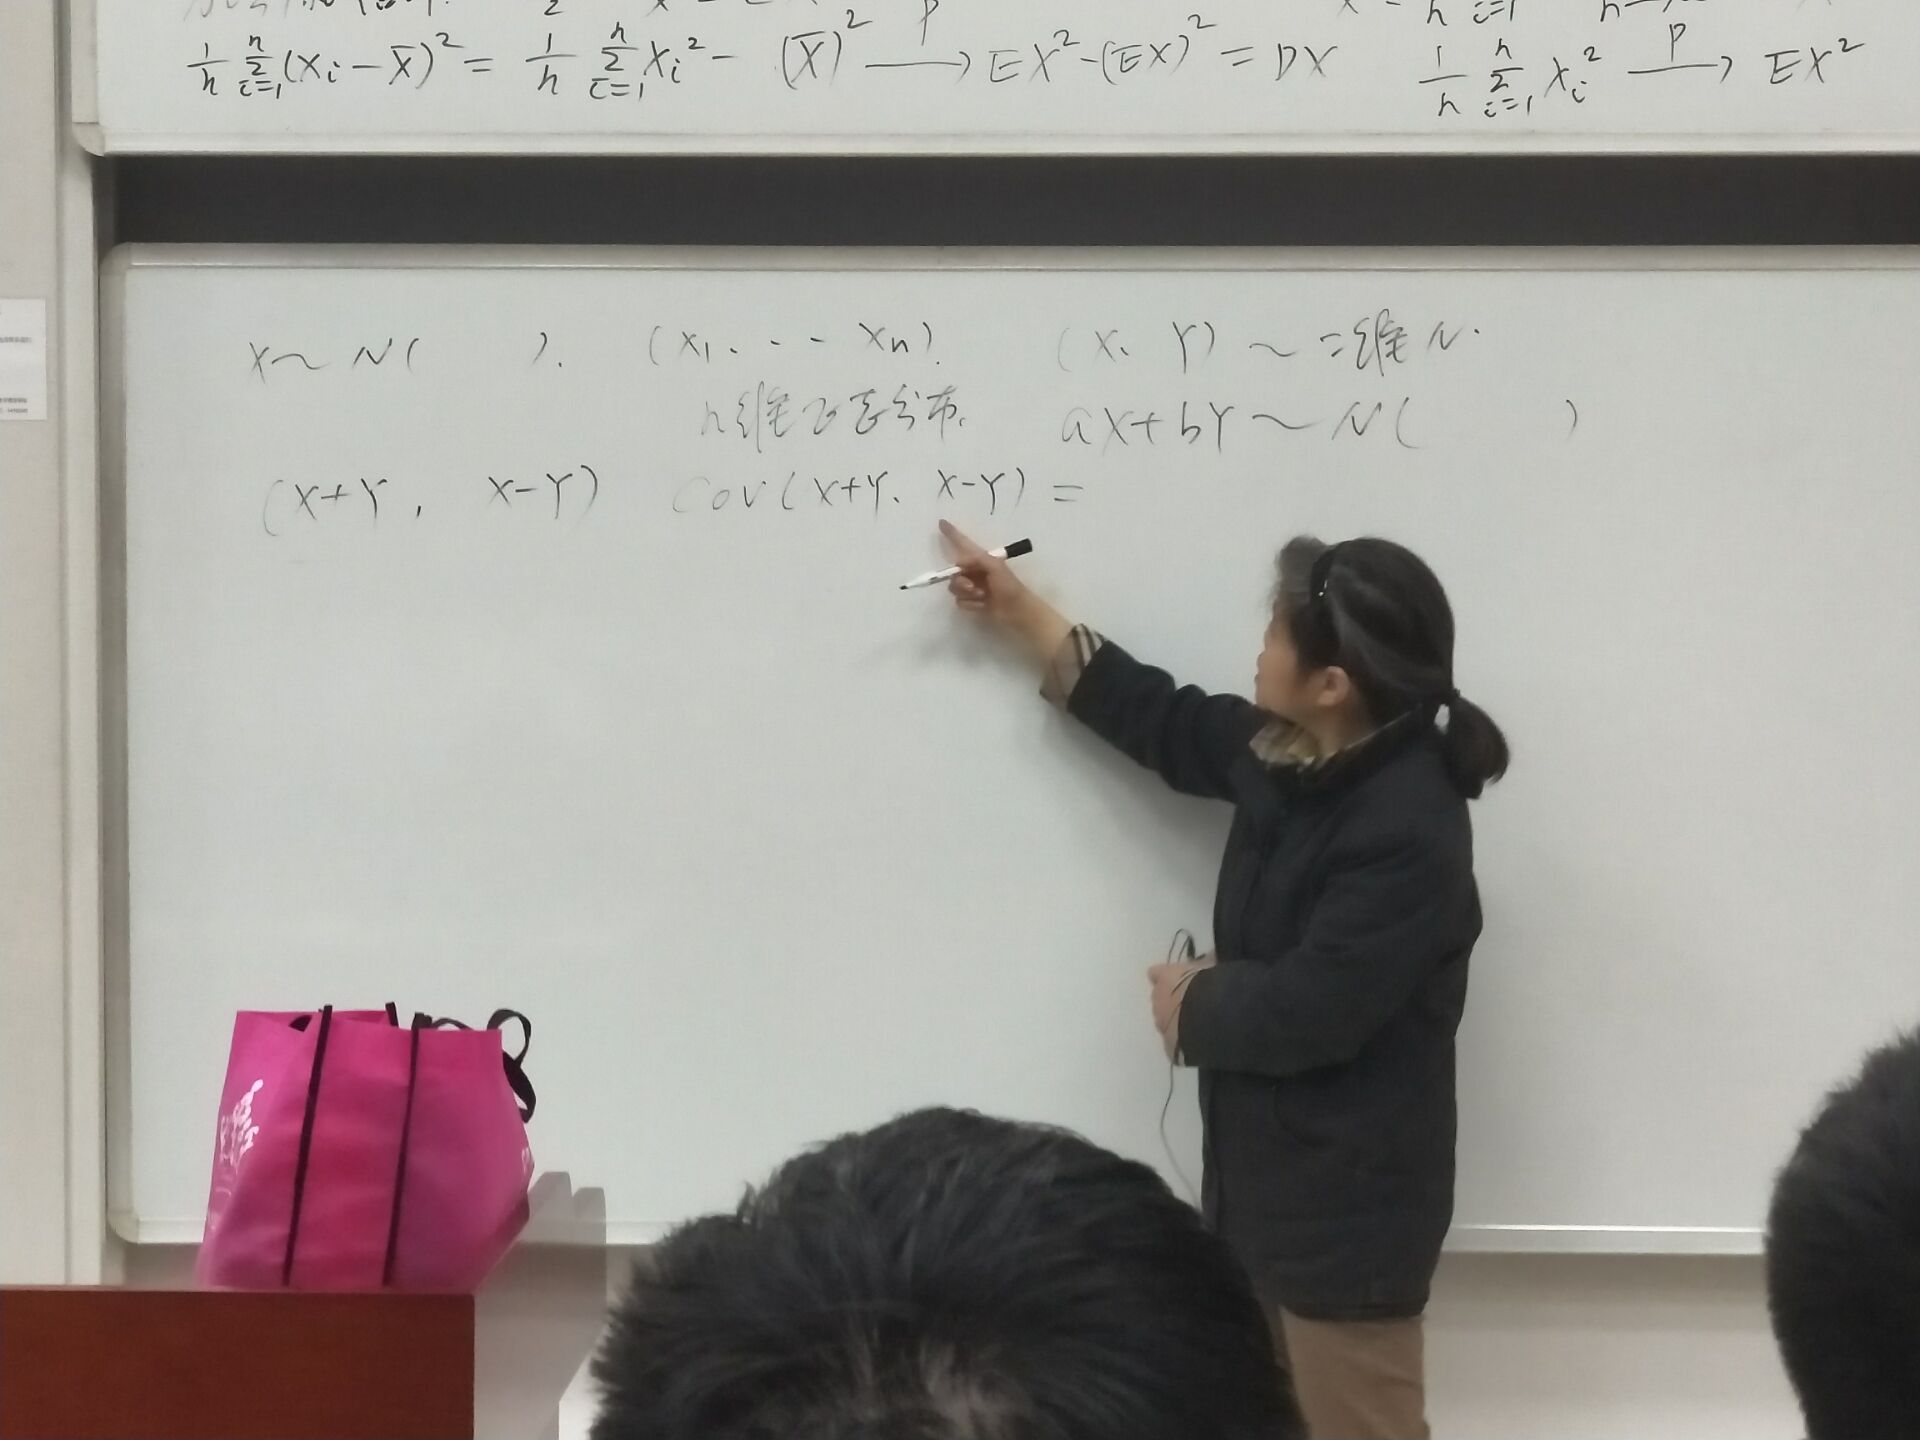 1/n Σ_{i=1}^{n} (X_i − X̄)² = 1/n Σ_{i=1}^{n} X_i² − (X̄)² —P→ EX² − (EX)² = DX 1/n Σ_{i=1}^{n} X_i² —P→ EX²
X ~ N( ). (X_1, ... X_n). (X, Y) ~ 二维N.
n维正态分布. aX+bY ~ N( )
(X+Y, X−Y) Cov(X+Y, X−Y) =